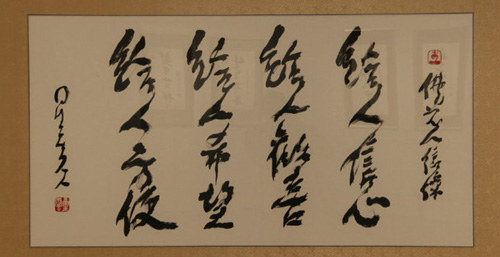 佛光人信條
給人信心
給人歡喜
給人希望
給人方便